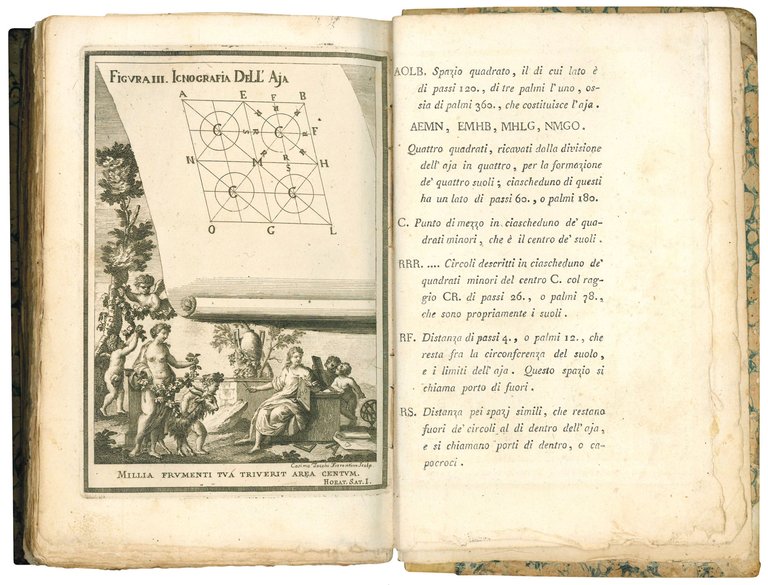 FIGVRA III. ICNOGRAFIA DELL' AJA
A E F B
R R
C S C F
R R
N M R H
S
C C
O G L
Cosimo Fiorentino Sculp.
MILLIA FRVMENTI TVÁ TRIVERIT AREA CENTVM.
HORAT. SAT. I.
AOLB. Spazio quadrato, il di cui lato è
di passi 120., di tre palmi l'uno, os-
sia di palmi 360., che costituisce l'aja.
AEMN, EMHB, MHLG, NMGO.
Quattro quadrati, ricavati dalla divisione
dell'aja in quattro, per la formazione
de' quattro suoli; ciascheduno di questi
ha un lato di passi 60., o palmi 180.
C. Punto di mezzo in ciascheduno de' qua-
drati minori, che è il centro de' suoli.
RRR. .... Circoli descritti in ciascheduno de'
quadrati minori del centro C. col rag-
gio CR. di passi 26., o palmi 78.,
che sono propriamente i suoli.
RF. Distanza di passi 4., o palmi 12., che
resta fra la circonferenza del suolo,
e i limiti dell'aja. Questo spazio si
chiama porto di fuori.
RS. Distanza pei spazj simili, che restano
fuori de' circoli al di dentro dell'aja,
e si chiamano porti di dentro, o ca-
pocroci.